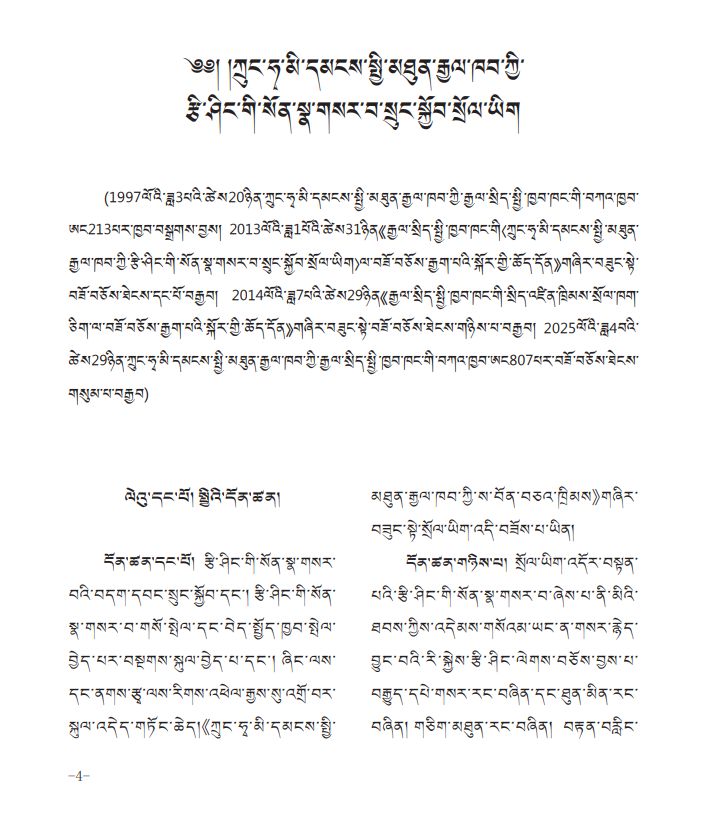 ༄༅། །ཀྲུང་ཧྭ་མི་དམངས་སྤྱི་མཐུན་རྒྱལ་ཁབ་ཀྱི་
རྩི་ཤིང་གི་སོན་སྣ་གསར་བ་སྲུང་སྐྱོབ་སྲོལ་ཡིག
(1997ལོའི་ཟླ3པའི་ཚེས20ཉིན་ཀྲུང་ཧྭ་མི་དམངས་སྤྱི་མཐུན་རྒྱལ་ཁབ་ཀྱི་རྒྱལ་སྲིད་སྤྱི་ཁྱབ་ཁང་གི་བཀའ་ཁྱབ་
ཨང213པར་ཁྱབ་བསྒྲགས་བྱས། 2013ལོའི་ཟླ1པོའི་ཚེས31ཉིན《རྒྱལ་སྲིད་སྤྱི་ཁྱབ་ཁང་གི〈ཀྲུང་ཧྭ་མི་དམངས་སྤྱི་མཐུན་
རྒྱལ་ཁབ་ཀྱི་རྩི་ཤིང་གི་སོན་སྣ་གསར་བ་སྲུང་སྐྱོབ་སྲོལ་ཡིག〉ལ་བཟོ་བཅོས་རྒྱག་པའི་སྐོར་གྱི་ཆོད་དོན》གཞིར་བཟུང་སྟེ་
བཟོ་བཅོས་ཐེངས་དང་པོ་བརྒྱབ། 2014ལོའི་ཟླ7པའི་ཚེས29ཉིན《རྒྱལ་སྲིད་སྤྱི་ཁྱབ་ཁང་གི་སྲིད་འཛིན་ཁྲིམས་སྲོལ་ཁག་
ཅིག་ལ་བཟོ་བཅོས་རྒྱག་པའི་སྐོར་གྱི་ཆོད་དོན》གཞིར་བཟུང་སྟེ་བཟོ་བཅོས་ཐེངས་གཉིས་པ་བརྒྱབ། 2025ལོའི་ཟླ4བའི་
ཚེས29ཉིན་ཀྲུང་ཧྭ་མི་དམངས་སྤྱི་མཐུན་རྒྱལ་ཁབ་ཀྱི་རྒྱལ་སྲིད་སྤྱི་ཁྱབ་ཁང་གི་བཀའ་ཁྱབ་ཨང807པར་བཟོ་བཅོས་ཐེངས་
གསུམ་པ་བརྒྱབ)
ལེའུ་དང་པོ། སྤྱིའི་དོན་ཚན།
དོན་ཚན་དང་པོ། རྩི་ཤིང་གི་སོན་སྣ་གསར་
བའི་བདག་དབང་སྲུང་སྐྱོབ་དང་། རྩི་ཤིང་གི་སོན་
སྣ་གསར་བ་གསོ་སྤེལ་དང་བེད་སྤྱོད་ཁྱབ་སྤེལ་
བྱེད་པར་བསྔགས་སྐུལ་བྱེད་པ་དང་། ཞིང་ལས་
དང་ནགས་རྩྭ་ལས་རིགས་འཕེལ་རྒྱས་སུ་འགྲོ་བར་
སྐུལ་འདེད་གཏོང་ཆེད།《ཀྲུང་ཧྭ་མི་དམངས་སྤྱི་
མཐུན་རྒྱལ་ཁབ་ཀྱི་ས་བོན་བཅའ་ཁྲིམས》གཞིར་
བཟུང་སྟེ་སྲོལ་ཡིག་འདི་བཟོས་པ་ཡིན།
དོན་ཚན་གཉིས་པ། སྲོལ་ཡིག་འདོར་བསྟན་
པའི་རྩི་ཤིང་གི་སོན་སྣ་གསར་བ་ཞེས་པ་ནི་མིའི་
ཐབས་ཀྱིས་འདེམས་གསོའམ་ཡང་ན་གསར་རྙེད་
བྱུང་བའི་རི་སྐྱེས་རྩི་ཤིང་ལེགས་བཅོས་བྱས་པ་
བརྒྱུད་དཔེ་གསར་རང་བཞིན་དང་ཐུན་མིན་རང་
བཞིན། གཅིག་མཐུན་རང་བཞིན། བརྟན་བརླིང་
–4–